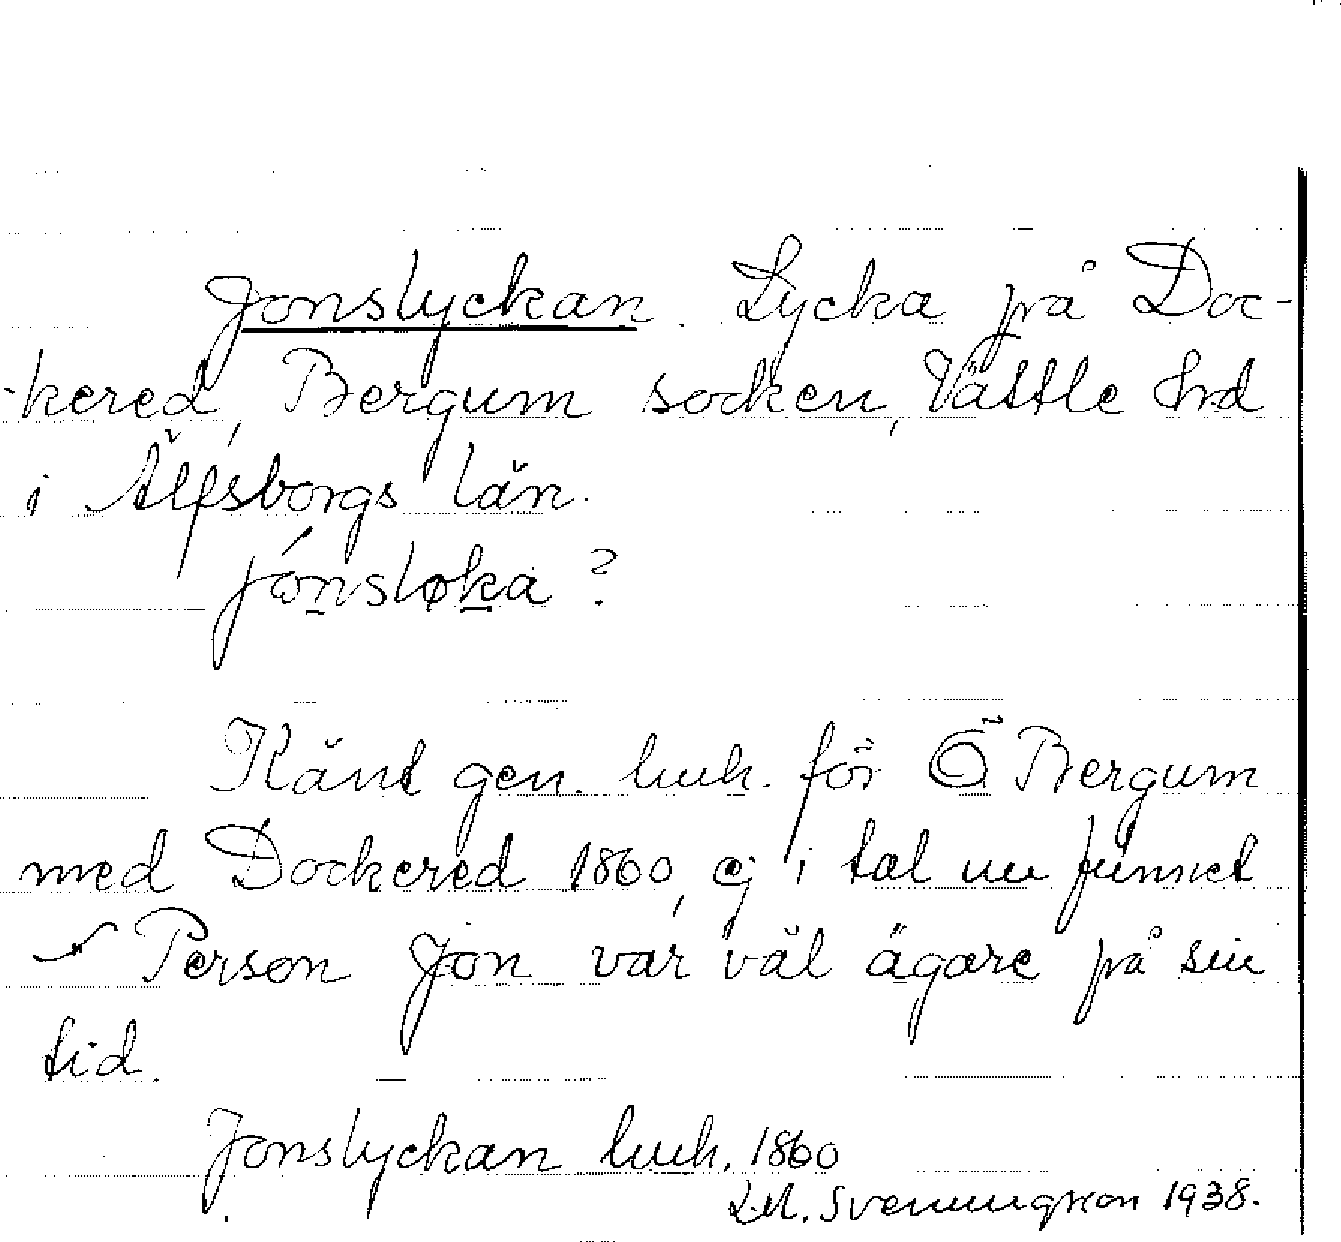 Jonslyckan. Lycka på Doc-
-kered, Bergum socken, Vättle hrd
i Älfsborgs län.
jónsløka ?
Känt gen. luh. för Ö Bergum
med Dockered 1860, ej i tal nu funnet
Person Jon var väl ägare på sin
tid.
Jonslyckan luh. 1860
Svenungsson 1938.